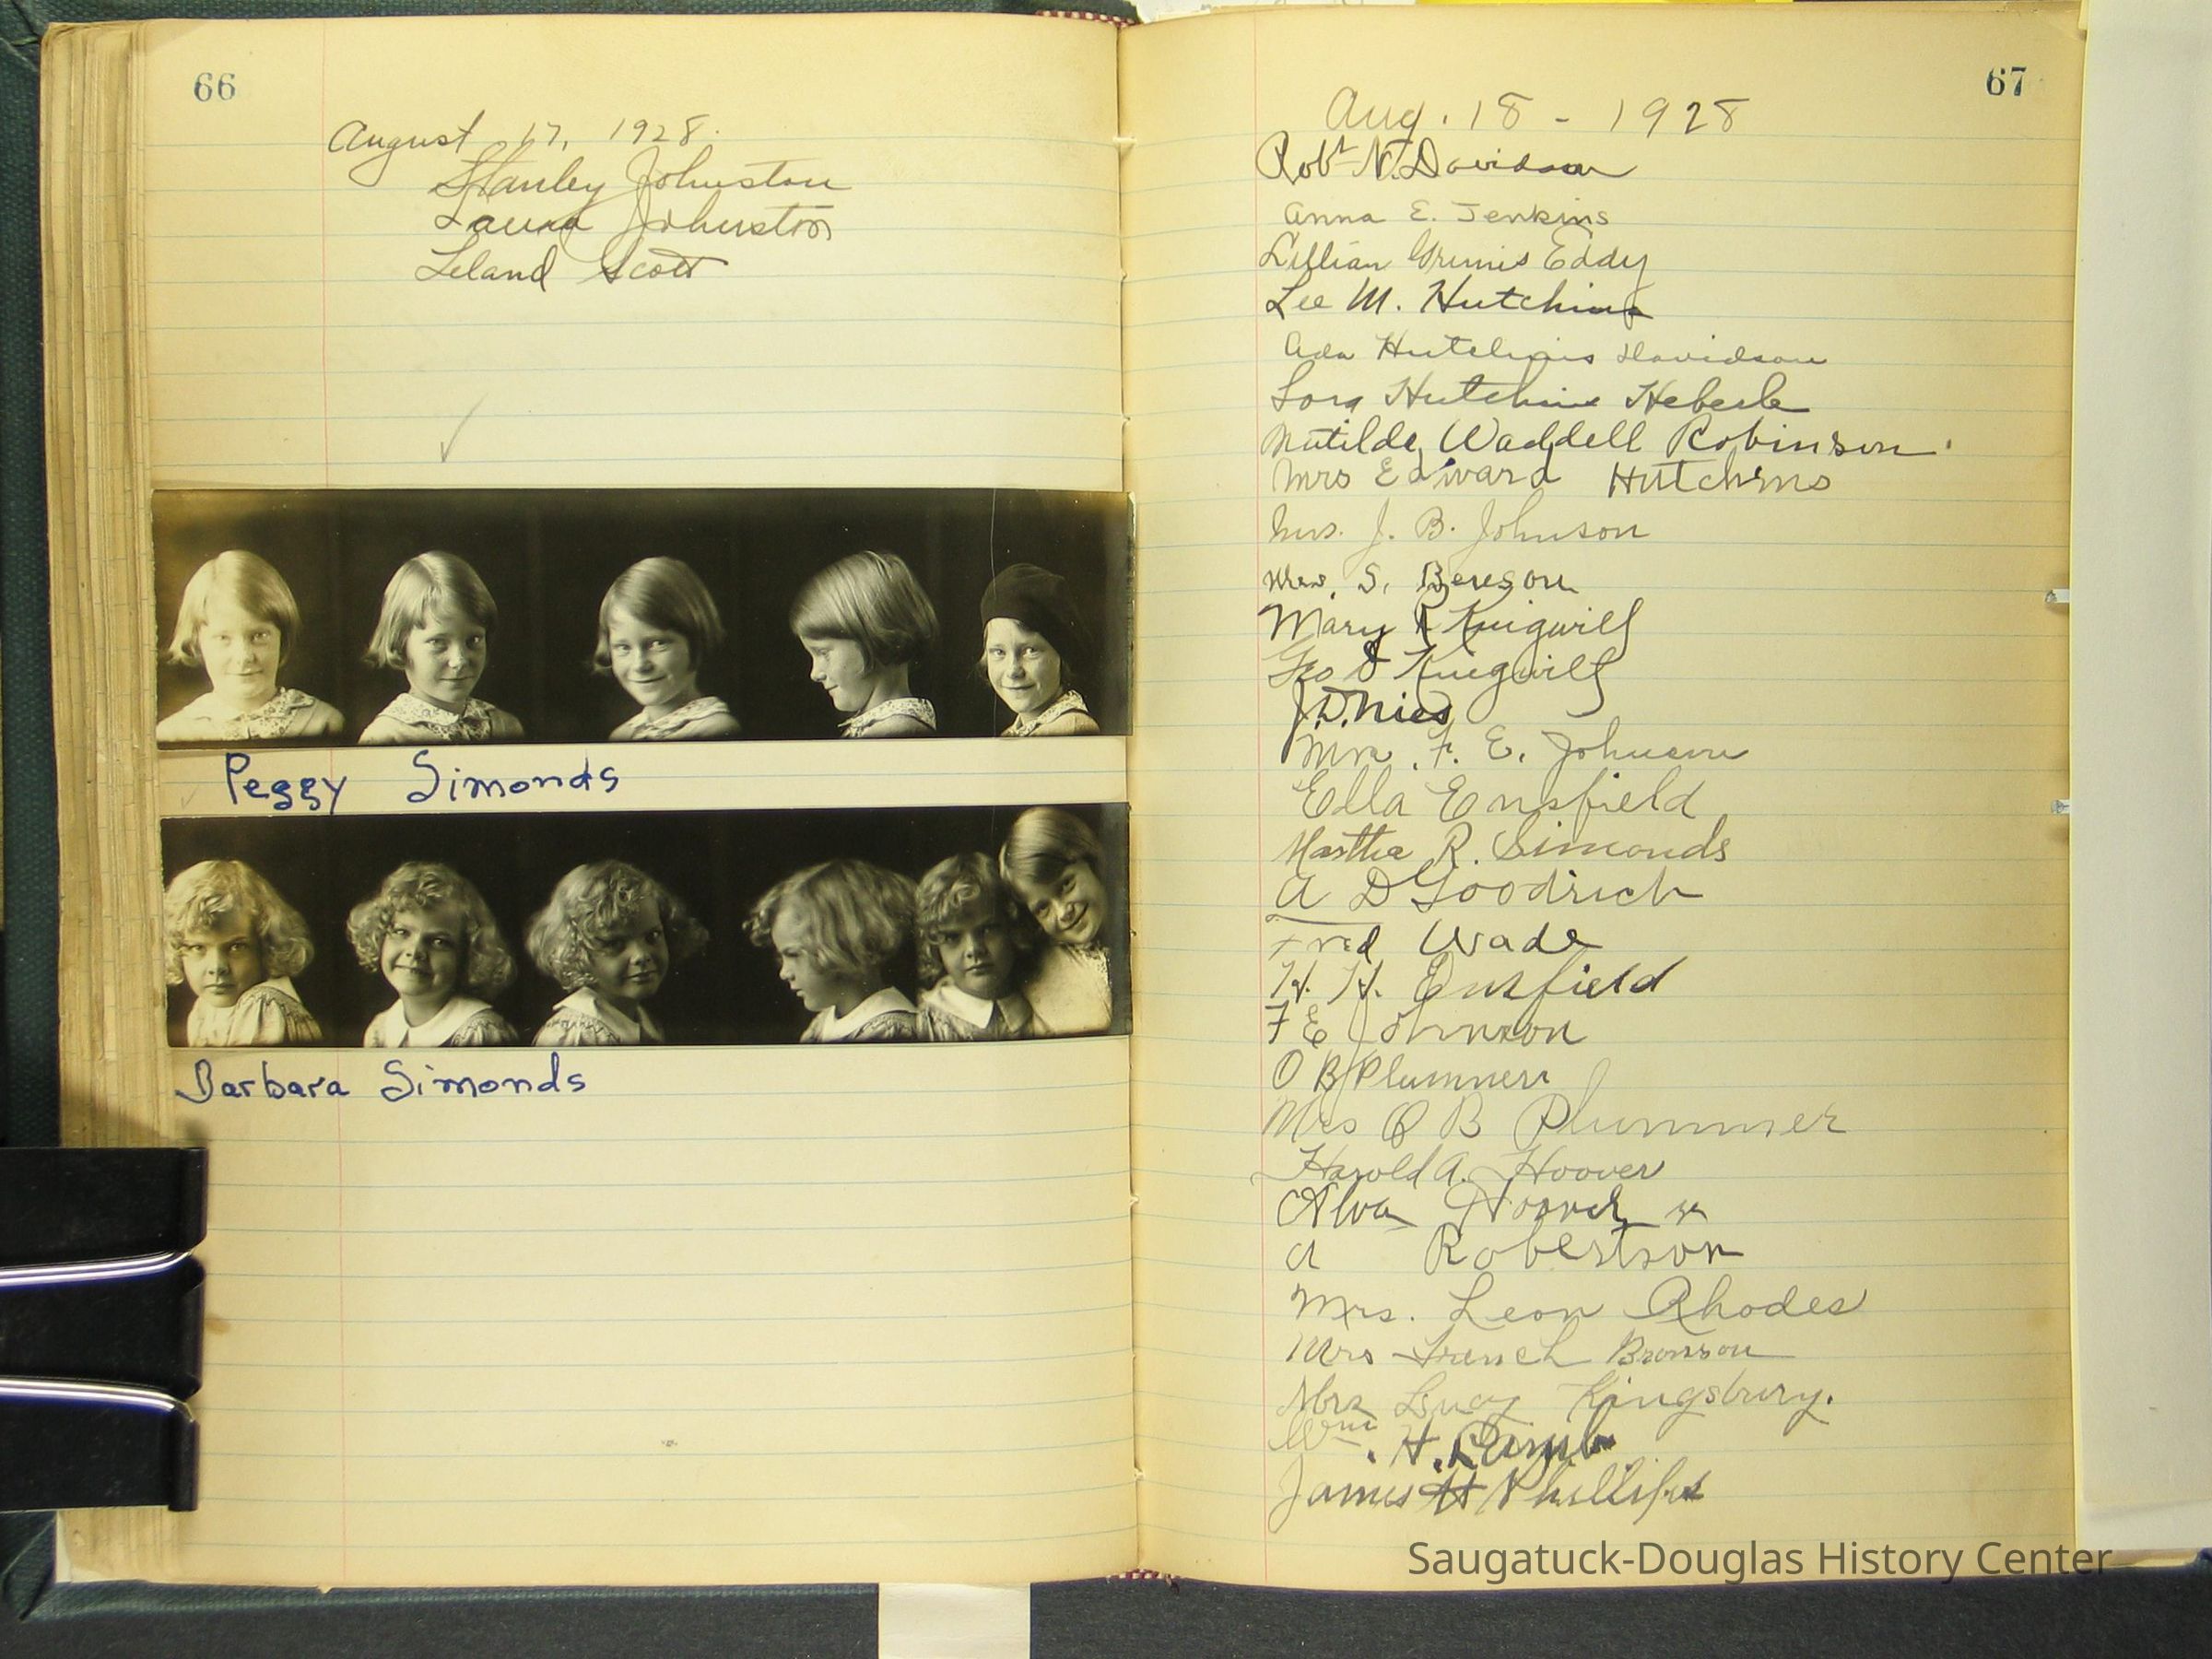 66
August 17, 1928.
Stanley Johnston
Laura Johnston
Leland Scott
Peggy Simonds
Barbara Simonds
67
Aug. 18 - 1928
Robt N. Davidson
Anna E. Jenkins
Lillian Eddy
Lee M. Hutchins
Ada Hutchins Davidson
Lora Hutchins Heberle
Matilda Waddell Robinson.
Mrs Edward Hutchins
Mrs. J. B. Johnson
Mrs. S. Benson
Mary Kingwill
Geo Kingwill
J. D. Nies
Mrs. F. E. Johnson
Ella Ensfield
Martha R. Simonds
A D Goodrich
Fred Wade
H. H. Ensfield
F E Johnson
O B Plummer
Mrs O B Plummer
Harold A. Hoover
Alva Hoover
A Robertson
Mrs. Leon Rhodes
Mrs French Bronson
Mrs Lucy Kingsbury.
Wm. H.
James H Phillips
Saugatuck-Douglas History Center